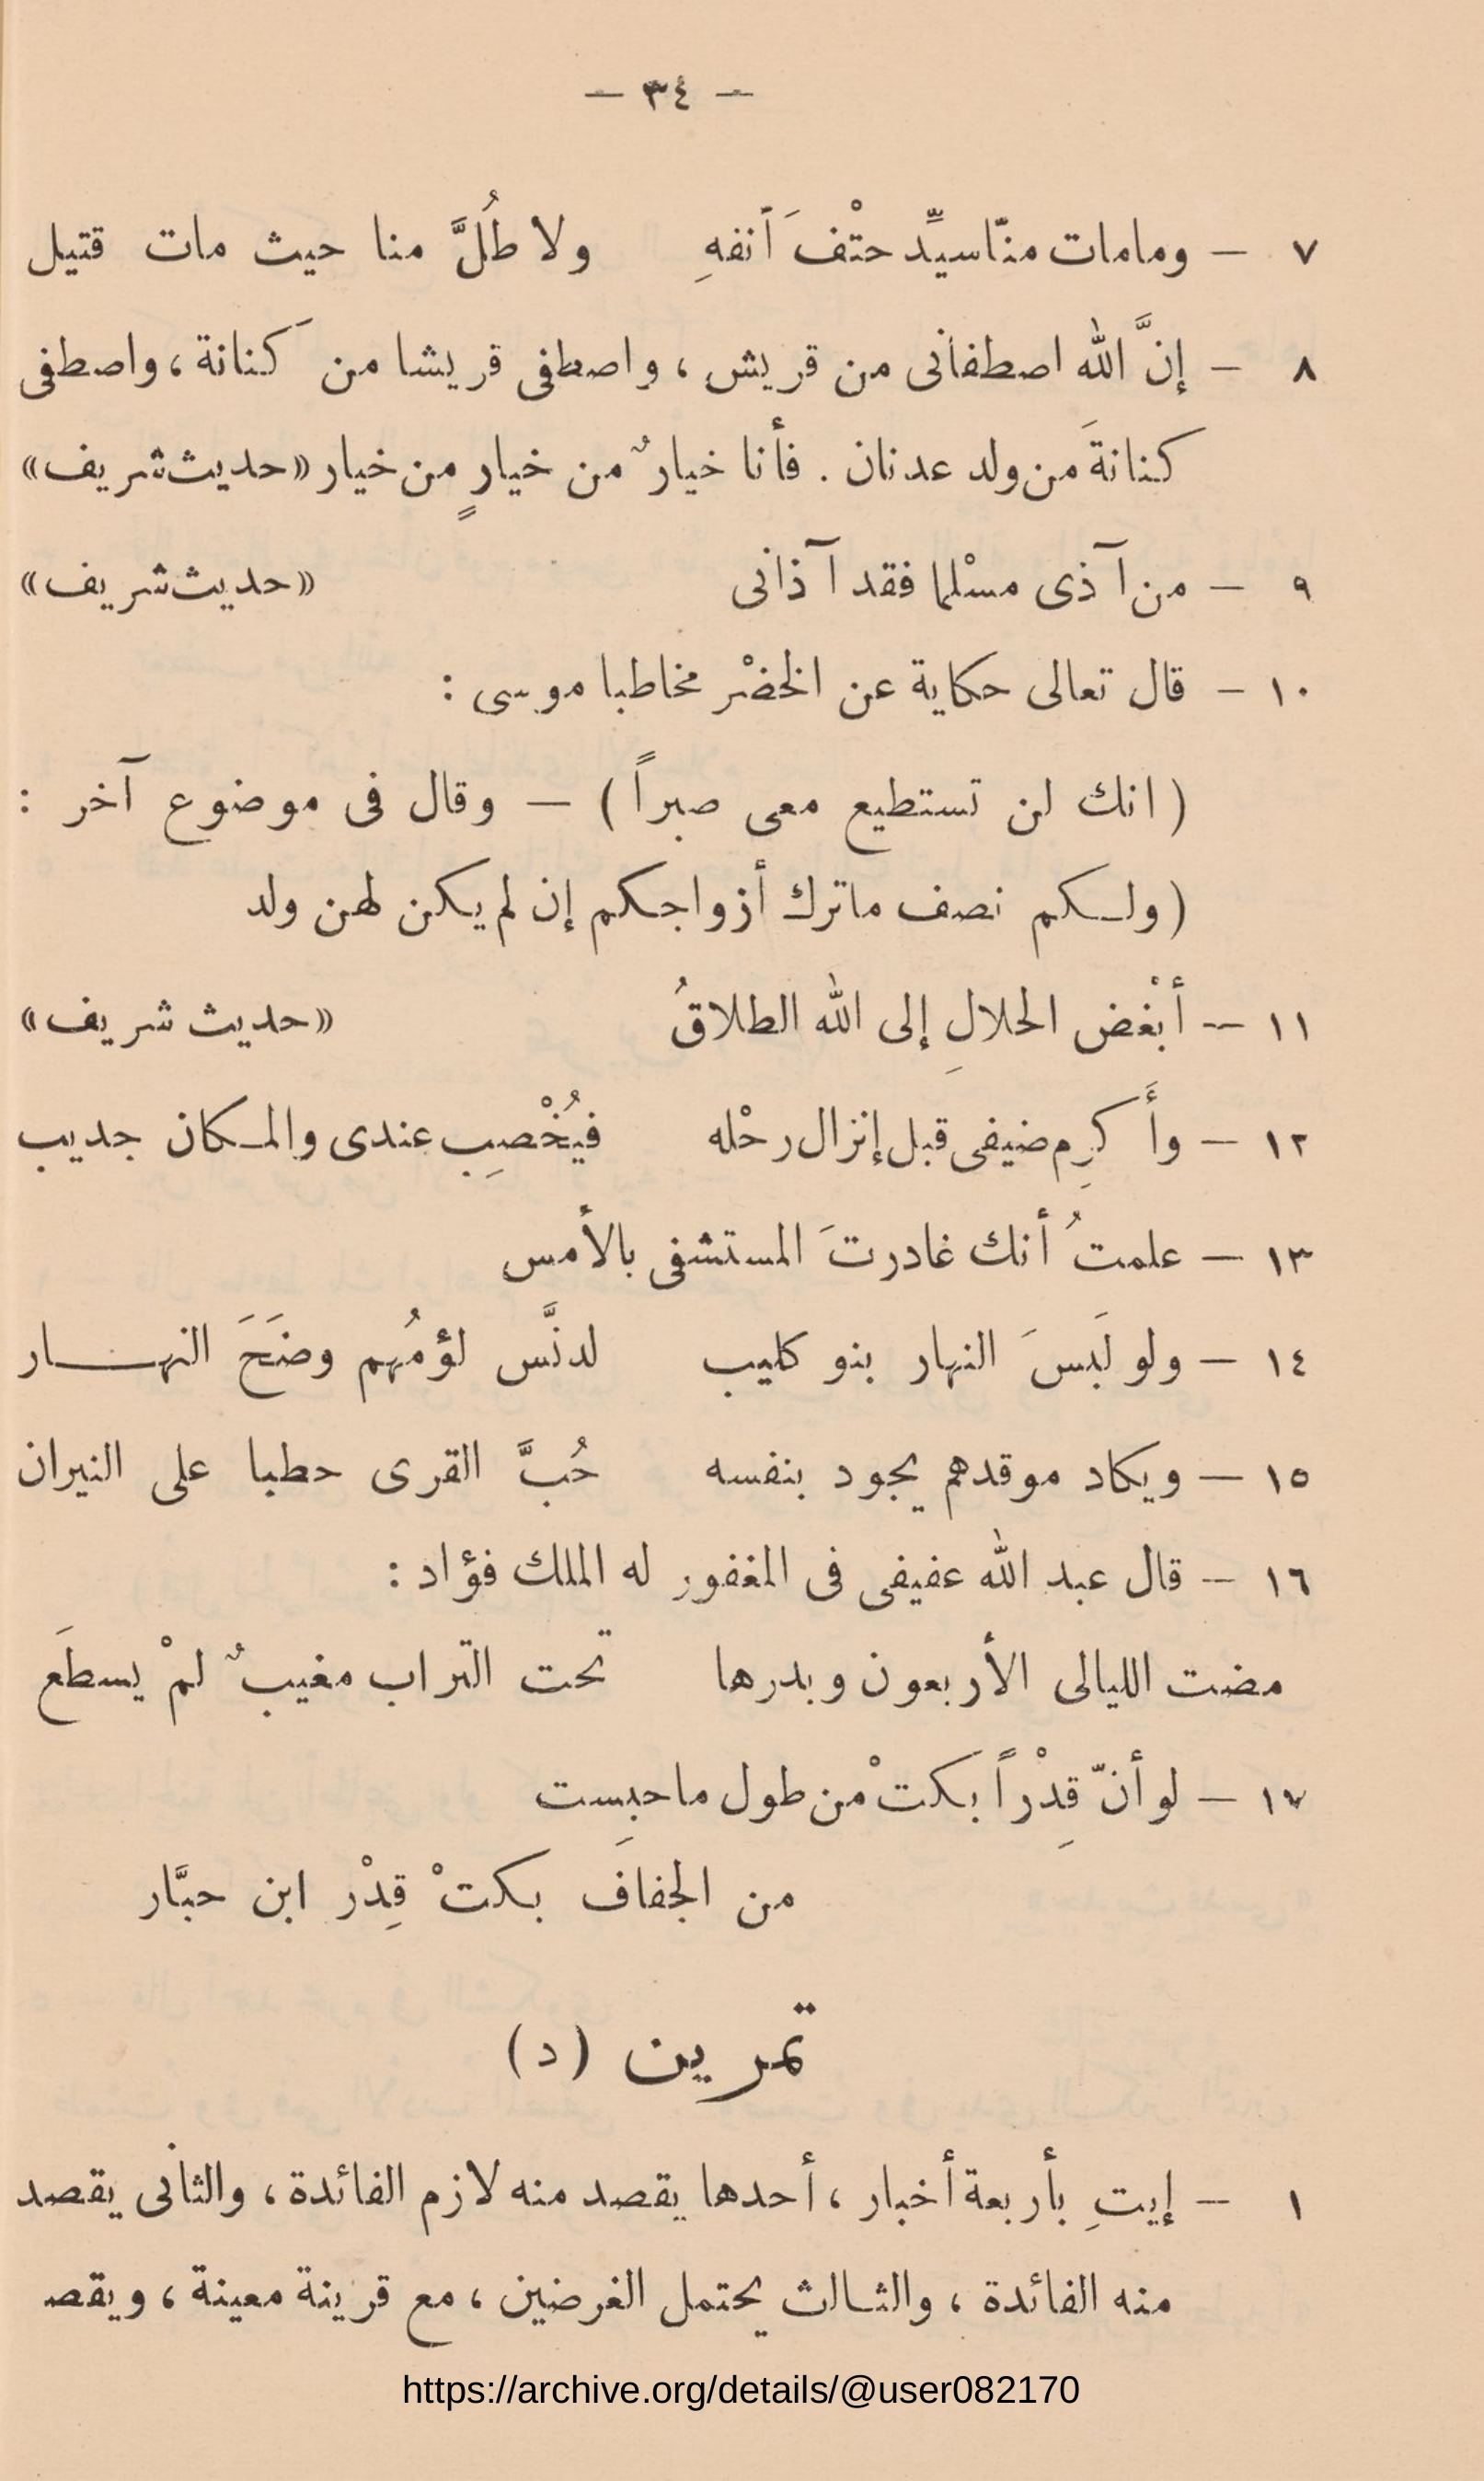 — ٣٤ —
٧ — ومامات منّاسيِّد حتْفَ أنفهِ ولا طُلَّ منا حيث مات قتيل
٨ — إنَّ الله اصطفانى من قريش ، واصطفى قريشا من كَنانة ، واصطفى
كنانةَ من ولد عدنان . فأنا خيارٌ من خيارٍ من خيار «حديث شريف»
٩ — من آذى مسْلما فقد آذانى «حديث شريف»
١٠ — قال تعالى حكاية عن الخضْر مخاطبا موسى :
( انك لن تستطيع معى صبراً ) — وقال فى موضوع آخر :
( ولـكم نصف ماترك أزواجـكم إن لم يكن لهن ولد
١١ — أبْغض الحلالِ إلى الله الطلاقُ «حديث شريف»
١٢ — وأَكرِم ضيفى قبل إنزال رحْله فيُخْصِب عندى والمـكان جديب
١٣ — علمتُ أنك غادرتَ المستشفى بالأمس
١٤ — ولو لَبسَ النهار بنو كليب لدنَّس لؤمُهم وضَحَ النهـــار
١٥ — ويكاد موقدهم يجود بنفسه حُبَّ القرى حطبا على النيران
١٦ — قال عبد الله عفيفى فى المغفور له الملك فؤاد :
مضت الليالى الأربعون وبدرها تحت التراب مغيبٌ لمْ يسطَع
١٧ — لو أنّ قِدْراً بكتْ من طول ماحبِست
من الجفافَ بكتْ قِدْر ابن حبَّار
تمرين (د)
١ — إيتِ بأربعة أخبار ، أحدها يقصد منه لازم الفائدة ، والثانى يقصد
منه الفائدة ، والثـالث يحتمل الغرضين ، مع قرينة معينة ، ويقصـ
https://archive.org/details/@user082170